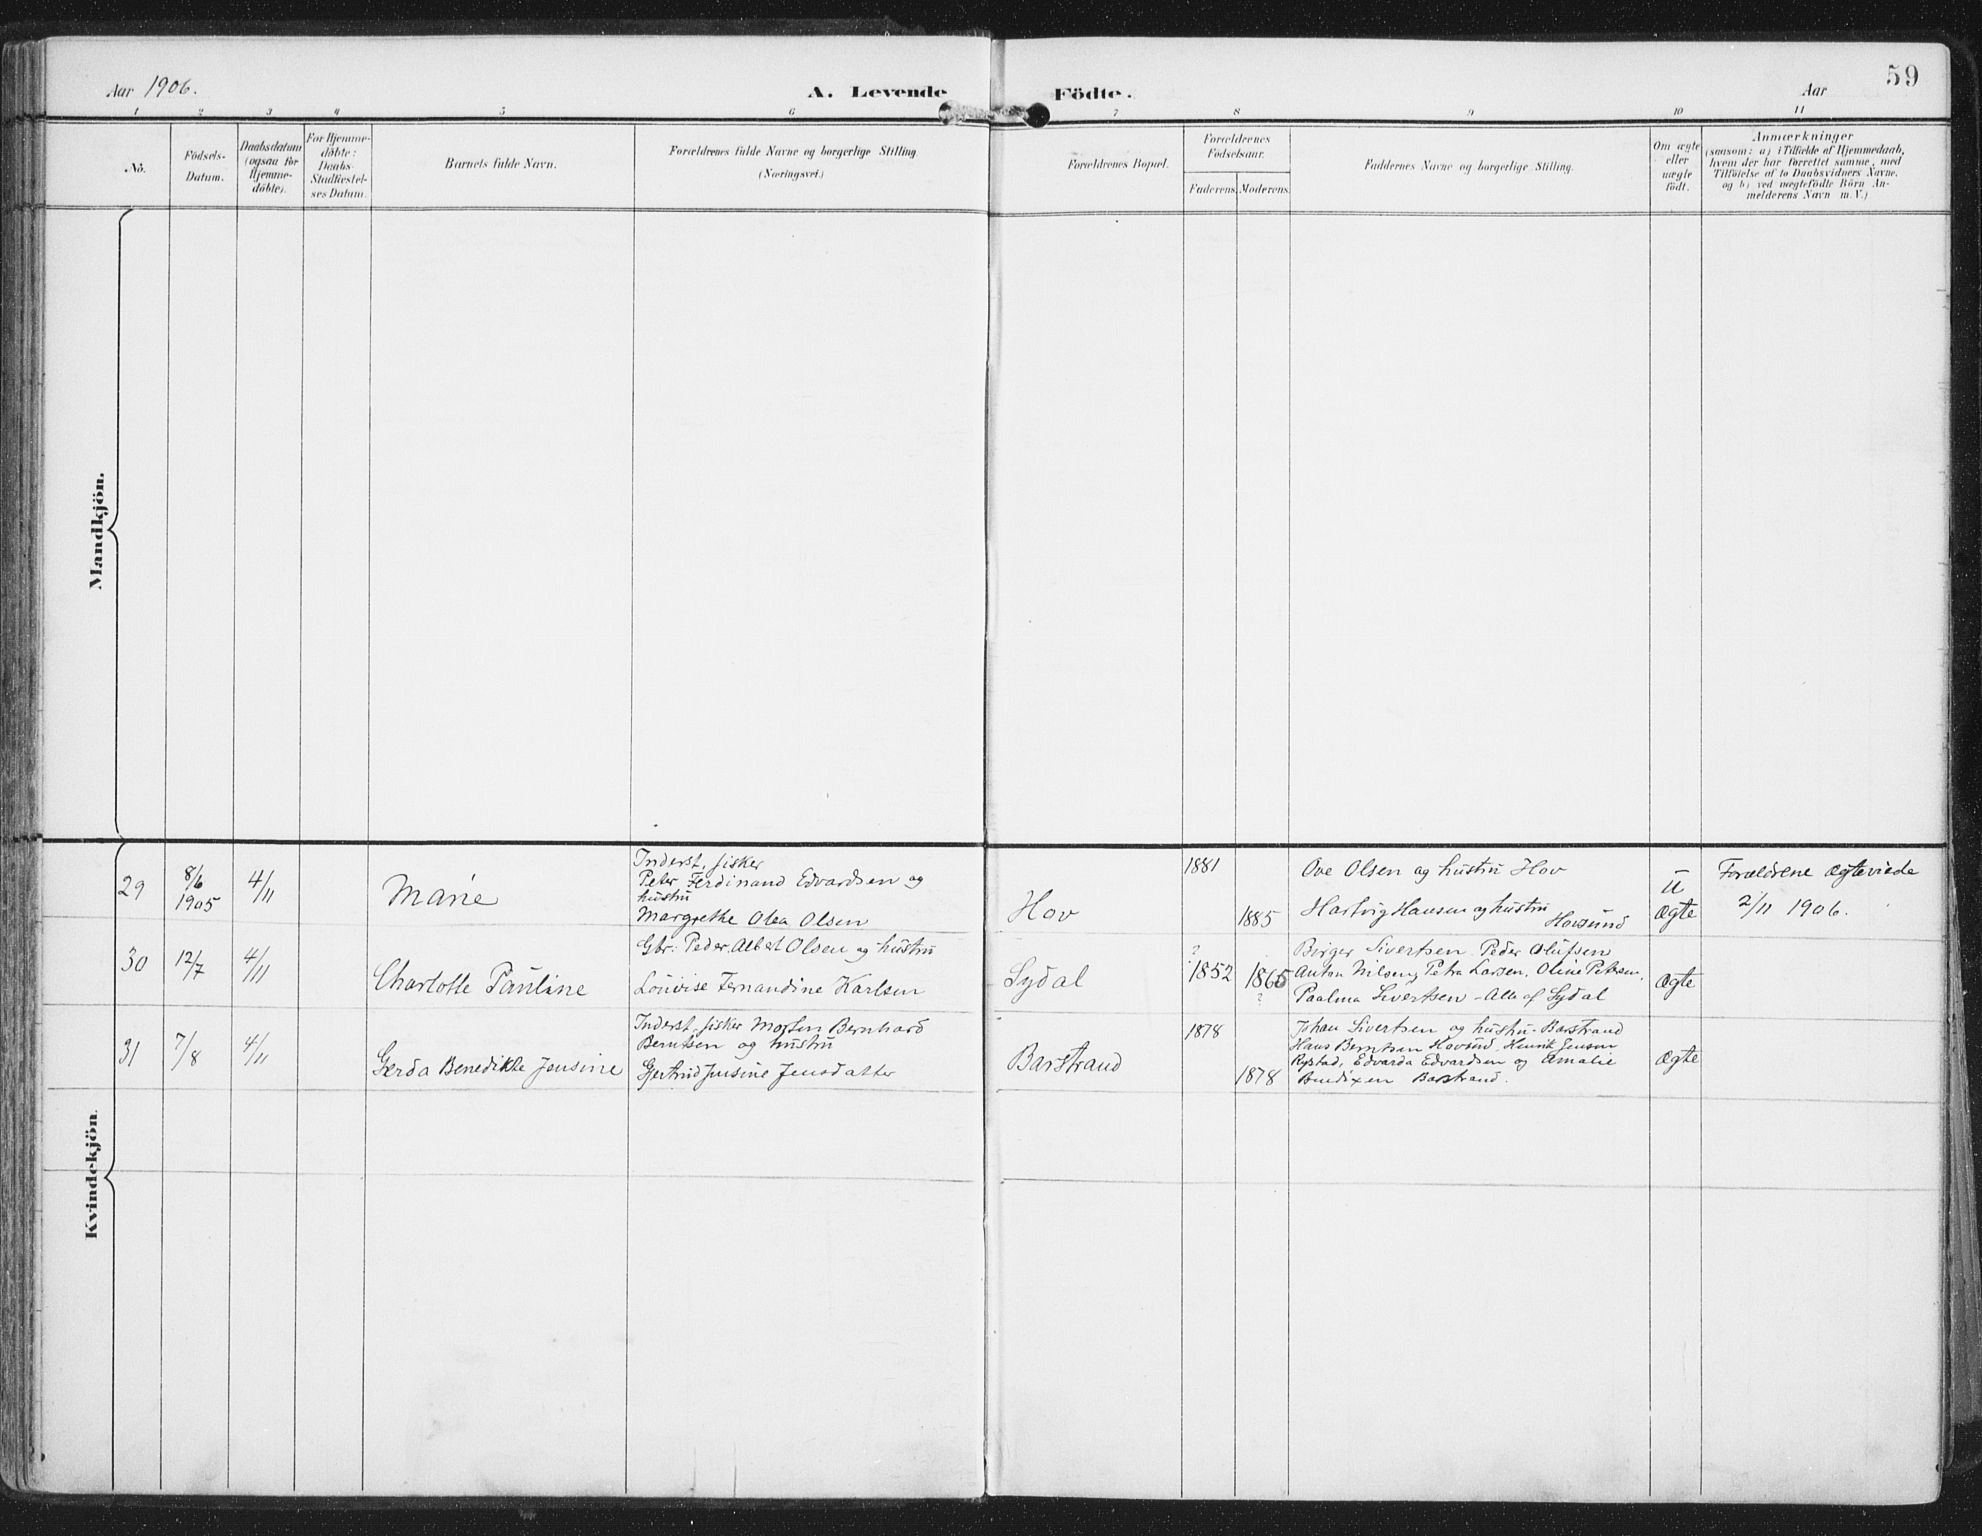 Aar 1906.
A. Levende Födte.
Aar
59
1 2 3 4 5 6 7 8 9 10 11
No.
Födsels-
Datum.
Daabsdatum
(ogsaa for
Hjemme-
döbte).
For Hjemme-
döbte:
Daabs
Stadfæstel-
ses Datum.
Barnets fulde Navn.
Forældrenes fulde Navne og borgerlige Stilling.
(Næringsvei.)
Forældrenes Bopæl.
Forældrenes
Födselsaar.
Faderens. Moderens.
Faddernes Navne og borgerlige Stilling.
Om ægte
eller
uægte
födt.
Anmærkninger
(saasom: a) i Tilfælde af Hjemmedaab,
hvem der har forrettet samme, med
Tilföielse af to Daabsvidners Navne,
og b) ved uægtefödte Börn An-
melderens Navn m. V.)
Mandkjön.
Kvindekjön.
29
8/6
1905
4/11
Marie
Inderst, fisker
Peter Ferdinand Edvardsen og
hustru
Margrethe Olea Olsen
Hov
1881
1885
Ove Olsen og hustru Hov
Hartvig Hansen og hustru
Hovsund
U
ægte
Forældrene ægteviede
2/11 1906.
30
12/7
4/11
Charlotte Pauline
Gbr: Peder Albert Olsen og hustru
Lovise Fernandine Karlsen
Sydal
?
1852
1865
?
Birger Sivertsen, Peder Olufsen
Anton Nilsen, Petra Larsen, Oline Petersen,
Paalma Sivertsen - Alle af Sydal
ægte
31
7/8
4/11
Gerda Benedikte Jensine
Inderst, fisker Morten Bernhard
Berntsen og hustru
Gjertrud Jensine Jensdatter
Barstrand
1878
1878
Johan Sivertsen og hustru - Barstrand
Hans Berntsen Hovsund, Henrik Jensen
Rystad, Edvarda Edvardsen og Amalie
Bendixen Barstrand.
ægte